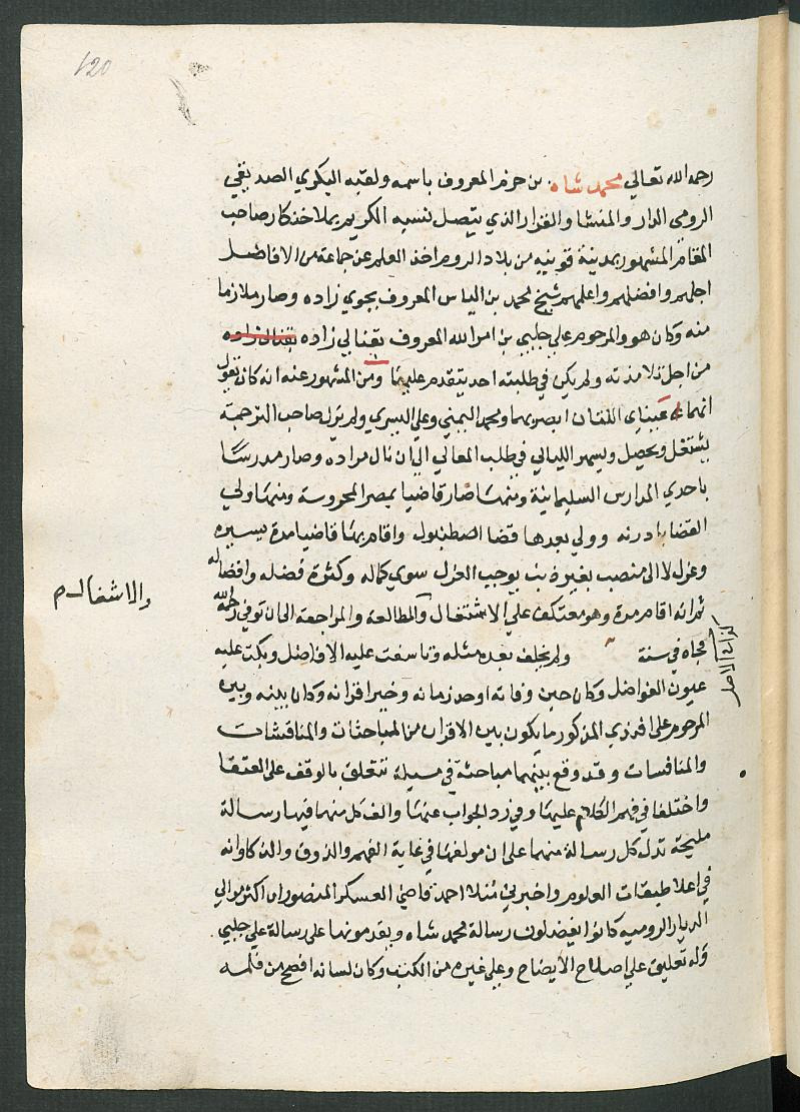 120
رحمه الله تعالي محمد شاه . بن حزم المعروف باسمه ولقبه البكري الصديقي
الرومي الدار والمنشا والقرار الذي يتصل نسبه الكريم بملا خنكار صاحب
المقام المشهور بمدينة قونيه من بلاد الروم اخذ العلم عن جماعة من الافاضل
اجلهم وافضلهم واعلمهم شيخ محمد بن الياس المعروف بجوي زاده وصار ملازما
منه وكان هو والمرحوم علي جلبي بن امر الله المعروف بقنالي زاده بقنالي زاده
من اجل تلامذته ولم يكن في طلبته احد يتقدم عليهما ومن المشهور عنه انه كان يقول
انهما عيناي اللتان ابصر بهما ومحمد اليمني وعلي اليسري ولم يزل صاحب الترجمة
يشتغل ويحصل ويسهر الليالي في طلب المعالي الي ان نال مراده وصار مدرسا
باحدي المدارس السليمانية ومنها صار قاضيا بمصر المحروسة ومنها ولي
القضا بادرنه وولي بعدها قضا اصطنبول واقام بها قاضيا مدة يسيره
وعزل لا الي منصب بغير ذنب يوجب العزل سوي كماله وكثرة فضله وافضاله
ثم انه اقام مدة وهو معتكف علي الاشتغال والمطالعه والمراجعة الي ان توفي
فجاه في سنة ولم يخلف بعده مثله وتاسفت عليه الافاضل وبكت عليه
عيون الفواضل وكان حين وفاته اوحد زمانه وخير اقرانه وكان بينه وبين
المرحوم علي افندي المذكور ما يكون بين الاقران من المباحثات والمناقشات
والمنافسات وقد وقع بينهما مباحثة في مسيلة تتعلق بالوقف علي العتقا
واختلفا في فهم الكلام عليها وفي رد الجواب عنها والف كل منهما فيها رسالة
مليحة تدل كل رسالة منهما علي ان مولفها في غاية الفهم والذوق والذكا وانه
في اعلا طبقات العلوم واخبرني مثلا احمد قاضي العسكر المنصور ان اكثر موالي
الديار الروميه كانوا يفضلون رسالة محمد شاه ويقدمونها علي رسالة علي جلبي .
وله تعليق علي اصلاح الايضاح وعلي غيره من الكتب وكان لسانه افصح من قلمه
والاشغال م
كذا في الاصل